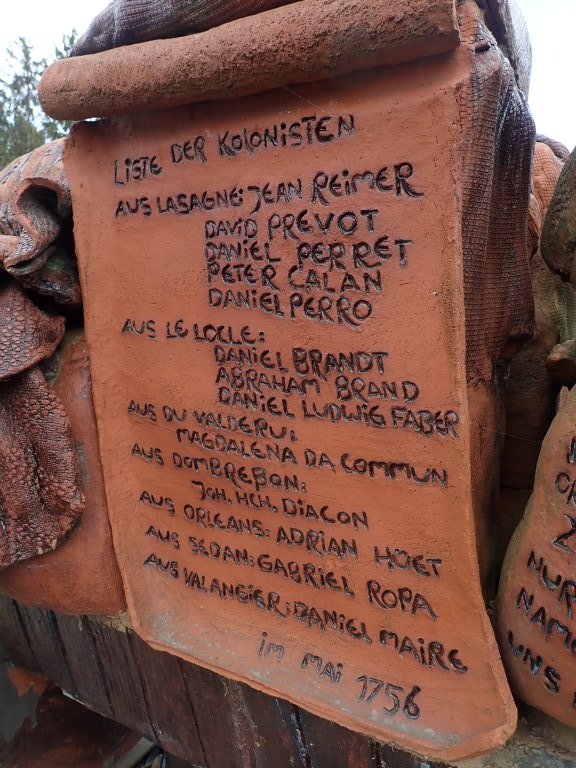 LISTE DER KOLONISTEN
AUS LASAGNE: JEAN REIMER
DAVID PREVOT
DANIEL PERRET
PETER CALAN
DANIEL PERRO
AUS LE LOCLE:
DANIEL BRANDT
ABRAHAM BRAND
DANIEL LUDWIG FABER
AUS DU VALDERU:
MAGDALENA DA COMMUN
AUS DOMBREBON:
JOH. HCH. DIACON
AUS ORLEANS: ADRIAN HÜET
AUS SEDAN: GABRIEL ROPA
AUS VALANGIER: DANIEL MAIRE
IM MAI 1756
NUR
NAM
UNS